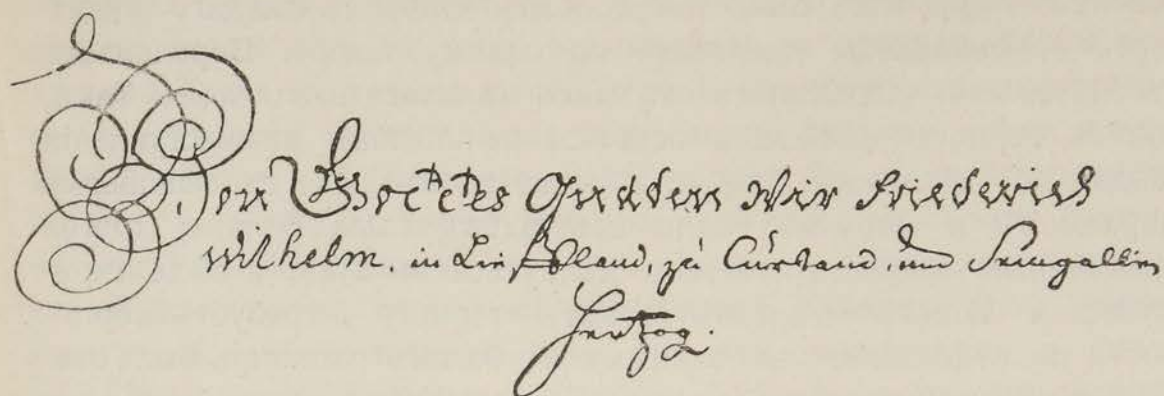 Von Gottes Gnaden Wir Friederich
Wilhelm, in Liefland, zu Curland, und Semgallen
Hertzog.